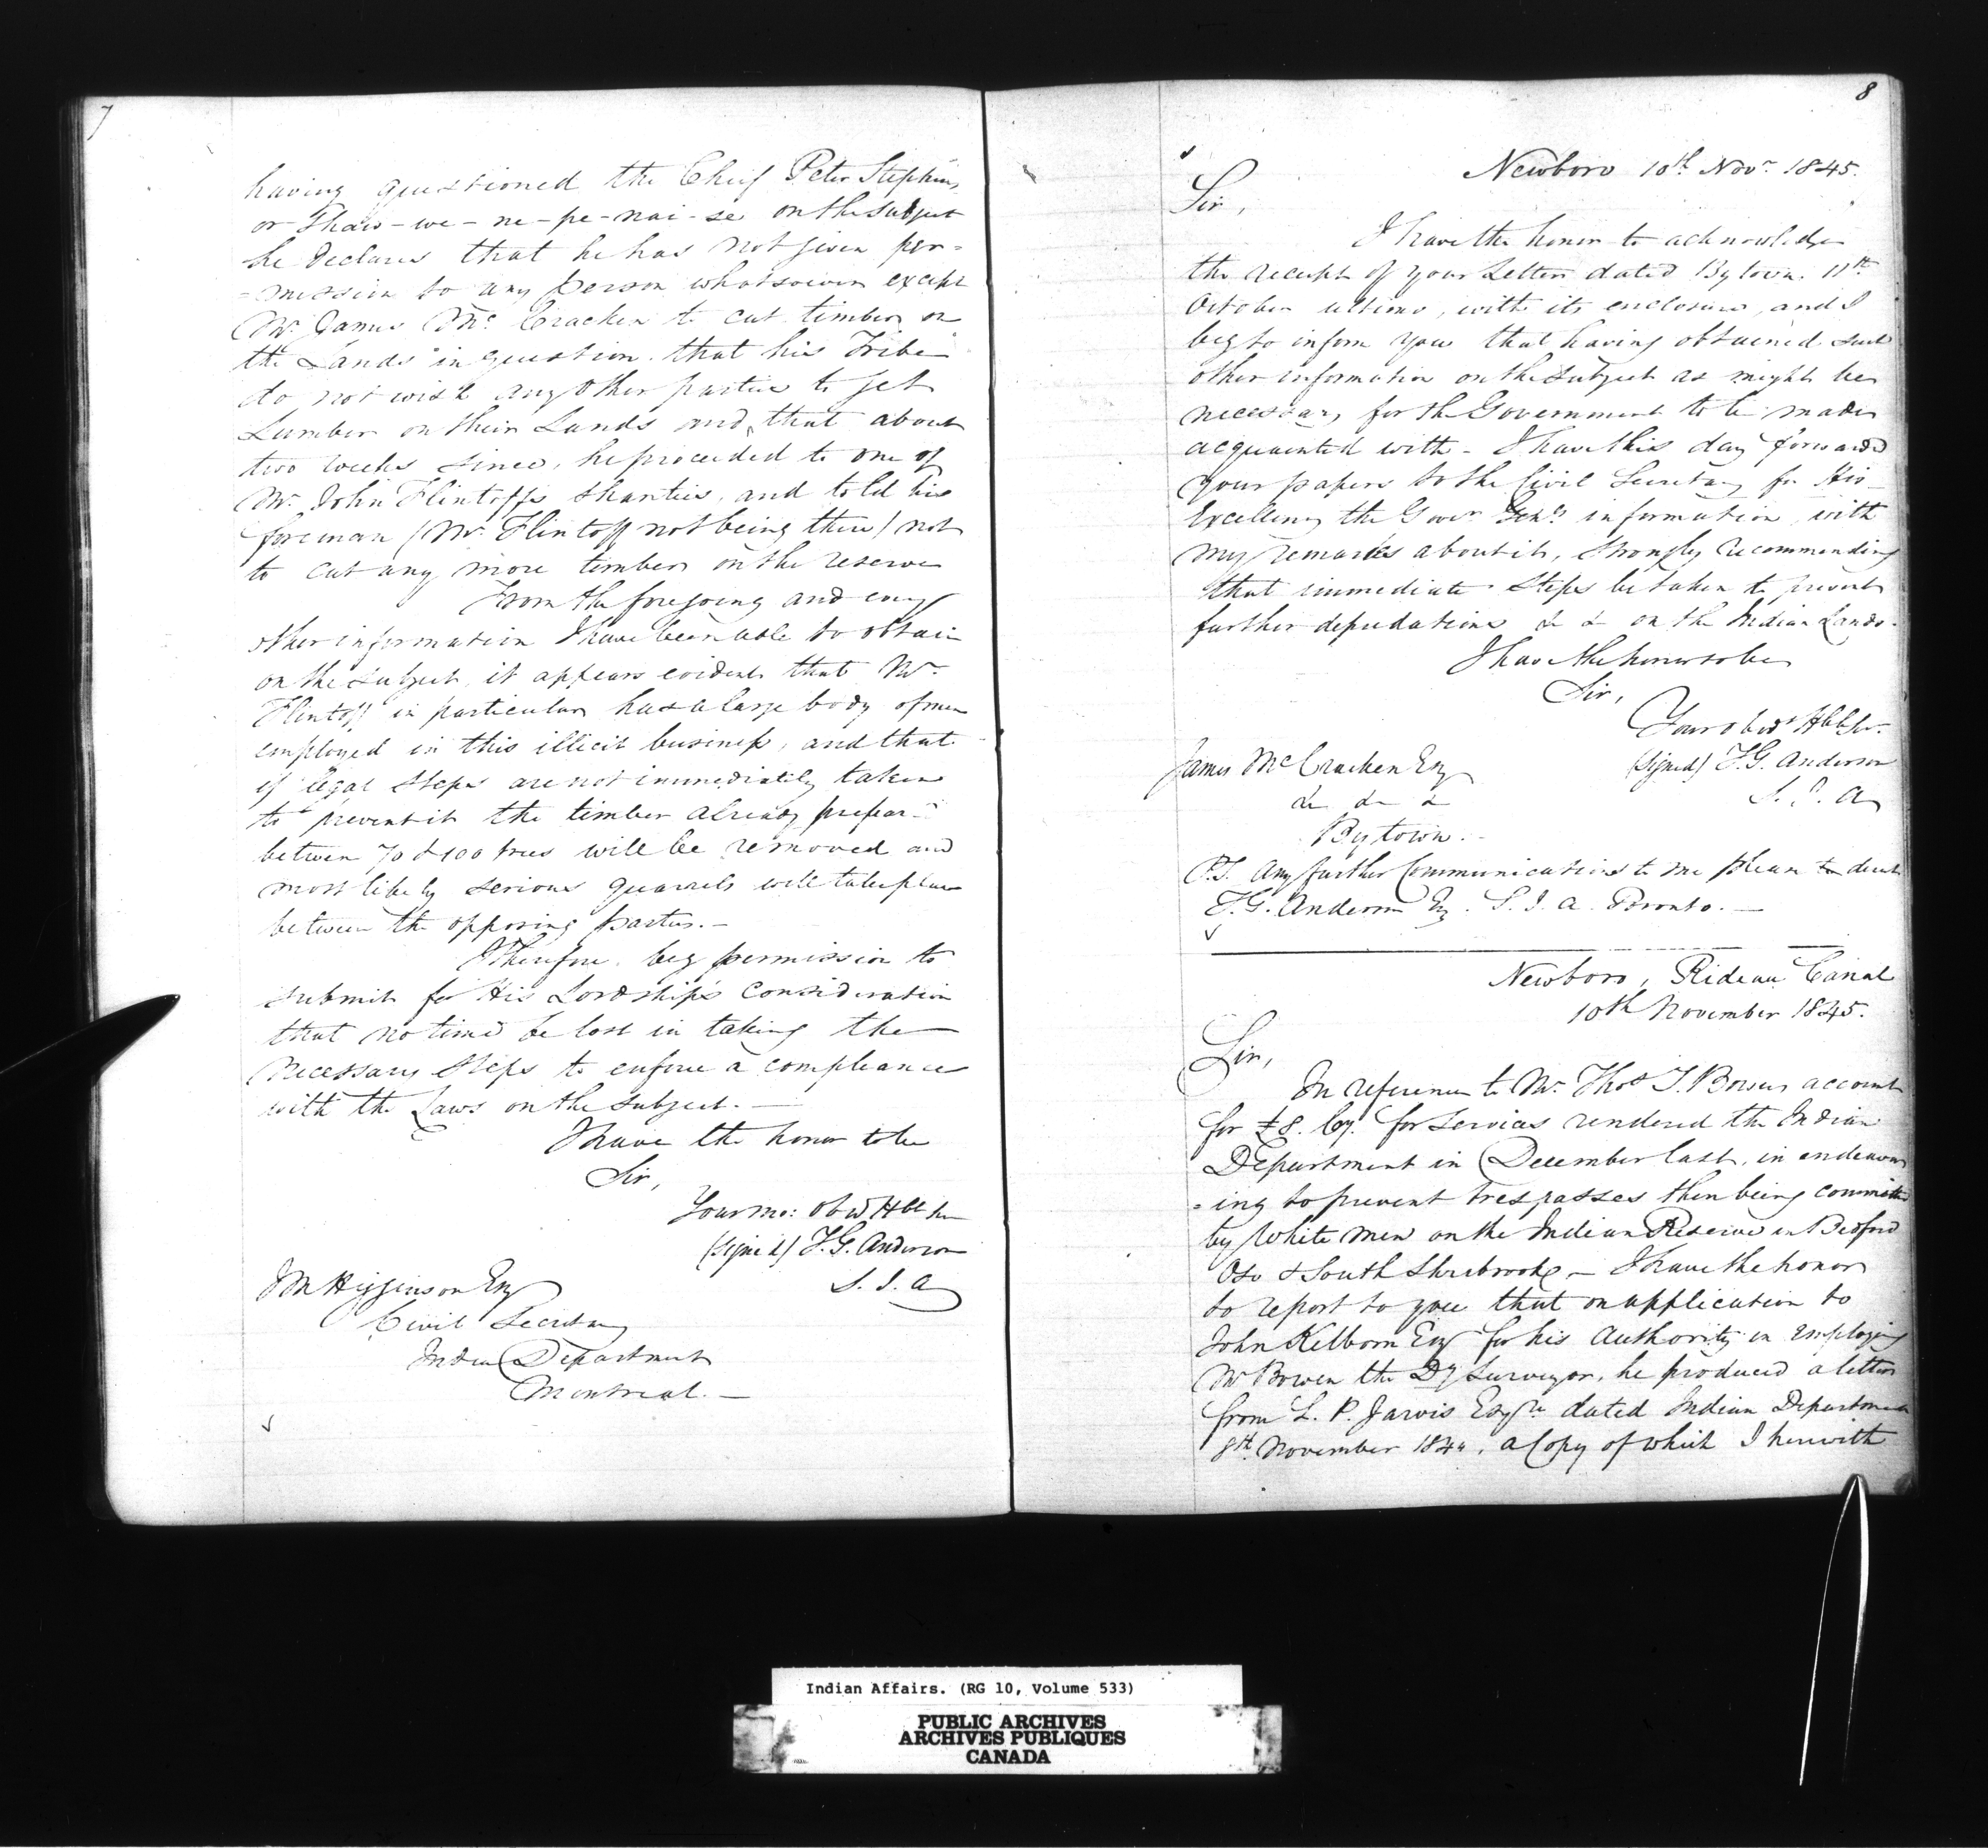 7
having questioned the Chief Peter Stephens
or Shaw-we-ne-pe-nai-se on the subject
he declares that he has not given per=
=mission to any person whatsoever except
Mr. James Mc.Cracken to cut timber on
the Lands in question. that his Tribe
do not wish any other parties to get
Lumber on their Lands and, that about
two weeks since, he proceeded to one of
Mr. John Flintoff's shanties, and told his
foreman (Mr. Flintoff not being there) not
to cut any more timber on the reserve
From the foregoing and every
other information I have been able to obtain
on the subject, it appears evident that Mr.
Flintoff in particular has a large body of men
employed in this illicit business, and that
if legal steps are not immediately taken
to prevent it the timber already prepar-d
between 70 & 100 trees will be removed and
most likely serious quarrels will take place
between the opposing parties.—
I therefore beg permission to
submit for His Lordship's consideration
that no time be lost in taking the
necessary steps to enforce a compliance
with the Laws on the subject.—
I have the honor to be
Sir,
Your mo: obt. Hble
(signed) T.G. Anderson
S.I.A
JM Higginson Esq
Civil Secretary
Indian Department
Montreal.—
8
Newboro 10th Novr. 1845.
Sir,
I have the honor to acknowledge
the receipt of your Letter dated Bytown 11th
October ultimo, with its enclosure, and I
beg to inform you that having obtained such
other information on the subject as might be
necessary for the Government to be made
acquainted with - I have this day forward
your papers to the Civil Secretary for His
Excellency the Govr. Genl's information, with
my remarks about it, strongly recommending
that immediate steps be taken to prevent
further depredations & & on the Indian Lands.
I have the honor to be
Sir,
Your obedt Hble Sr.
(signed) T.G. Anderson
S.I.A
James McCracken Esq
& & &
Bytown.-
P.S. Any further Communications to me please to direct
T.G. Anderson Esq. S.I.A. Toronto.—
Newboro, Rideau Canal
10th November 1845.
Sir,
In reference to Mr. Thos. T. Bowens account
for £8. for services rendered the Indian
Department in December last, in endeavour
=ing to prevent trespasses then being committed
by White men on the Indian Reserve in Bedford
Oso & South Sherbrooke — I have the honor
to report to you that on application to
John Kelborn Esq for his authority in employing
Mr Bowen the Dy Surveyor, he produced a letter
from S. P. Jarvis Esqre. dated Indian Department
8th November 1844, a Copy of which I herewith
Indian Affairs. (RG 10, Volume 533)
PUBLIC ARCHIVES
ARCHIVES PUBLIQUES
CANADA